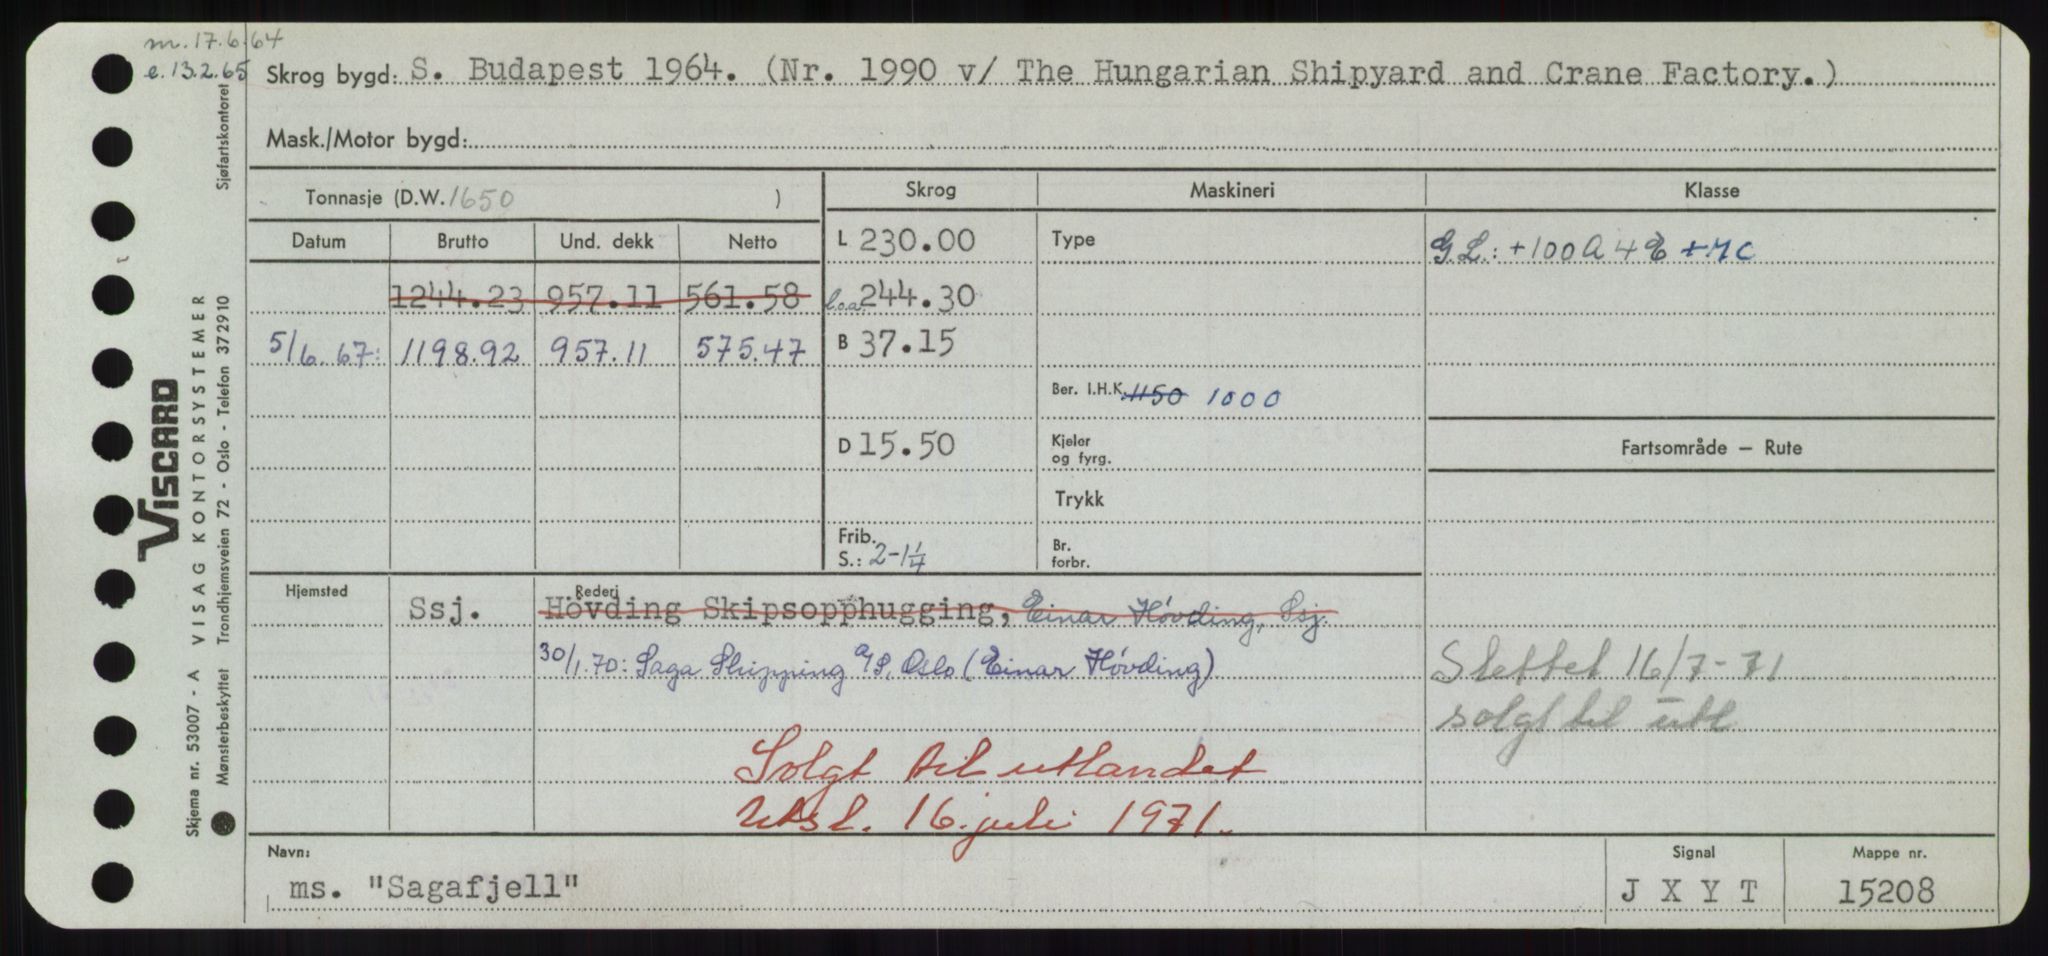 m. 17.6.64
e. 13.2.65
Skrog bygd: S. Budapest 1964. (Nr. 1990 v/ The Hungarian Shipyard and Crane Factory.)
Mask./Motor bygd:
Tonnasje (D.W. 1650 )
Skrog
Maskineri
Klasse
Datum Brutto Und. dekk Netto
L 230.00
Type
G.L.: +100A4E +MC
1244.23 957.11 561.58
l.o.a. 244.30
5/6.67: 1198.92 957.11 575.47
B 37.15
Ber. I.H.K. 1150 1000
D 15.50
Kjeler
og fyrg.
Fartsområde — Rute
Trykk
Frib.
S.: 2-1¼
Br.
forbr.
Hjemsted
Rederi
Ssj. Hövding Skipsopphugging, Einar Hövding, Ssj.
30/1.70: Saga Shipping A/S, Oslo (Einar Hövding)
Slettet 16/7-71
solgt til utl
Solgt til utlandet
Utsl. 16. juli 1971.
Navn:
ms. "Sagafjell"
Signal
J X Y T
Mappe nr.
15208
VISCARD
VISAG KONTORSYSTEMER
Sjøfartskontoret
Skjema nr. 53007 - A
Mønsterbeskyttet Trondhjemsveien 72 - Oslo - Telefon 372910